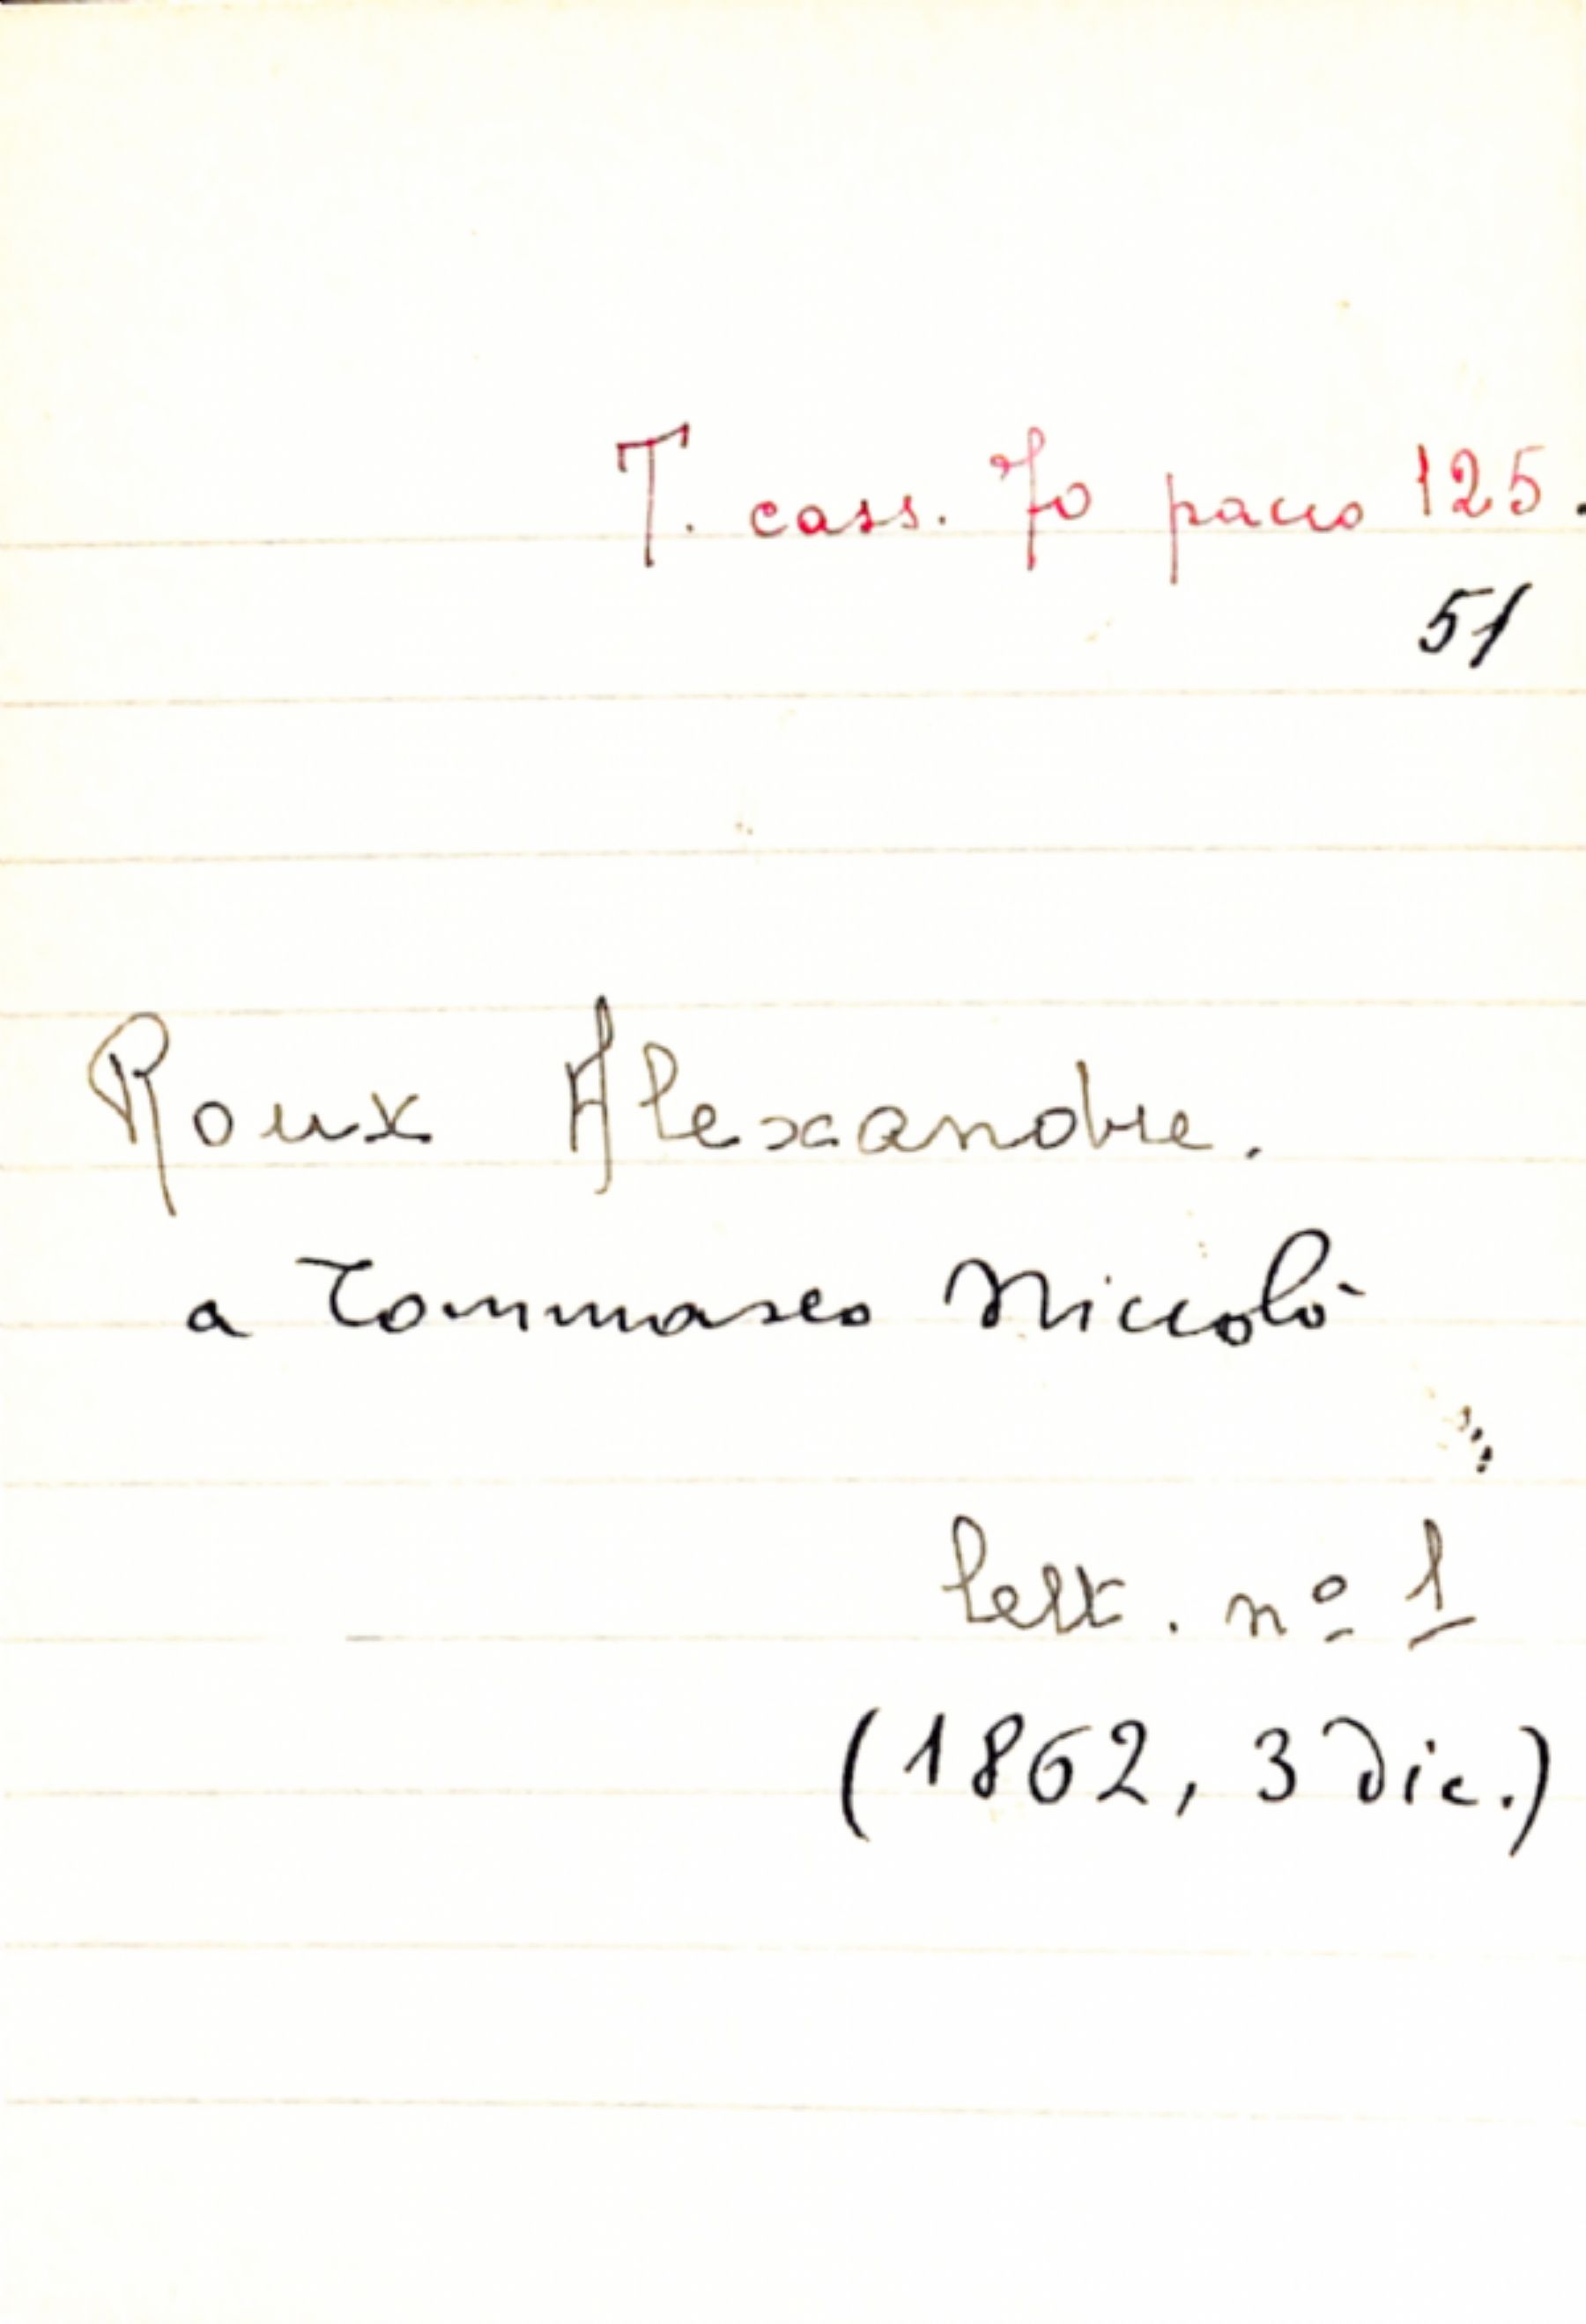 T. cass. 70 pacco 125.
51
Roux Alexandre.
a Tommaseo Niccolò
lett. nº 1
(1862, 3 dic.)